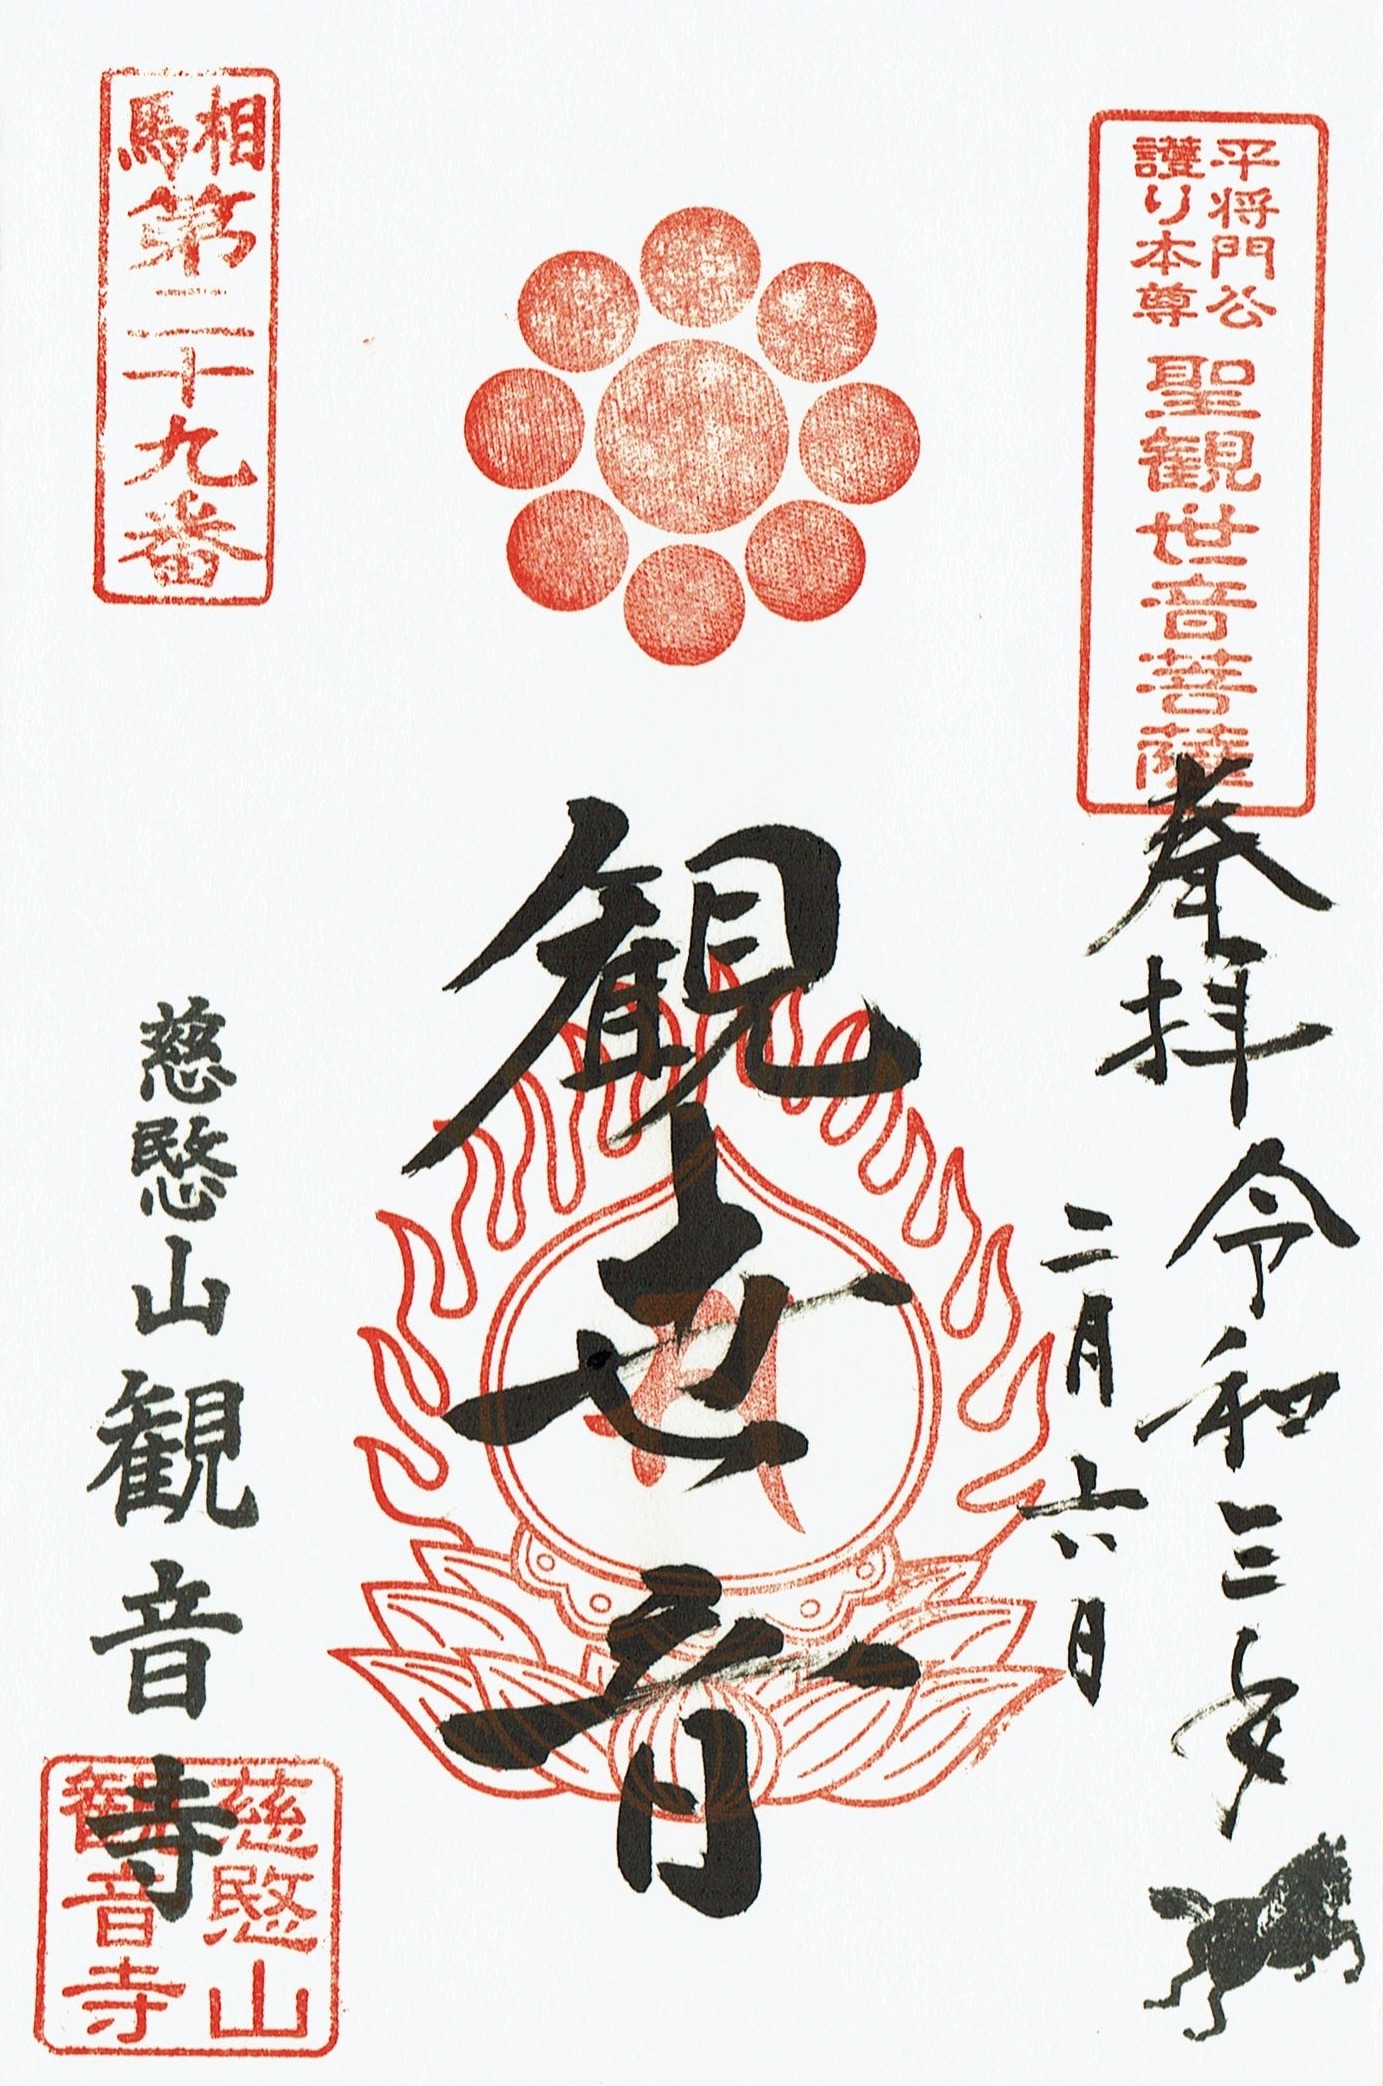 平将門公
護り本尊
聖観世音菩薩
奉拝
令和三年
二月六日
観世音
相馬
第二十九番
慈愍山観音寺
慈愍山
観音寺